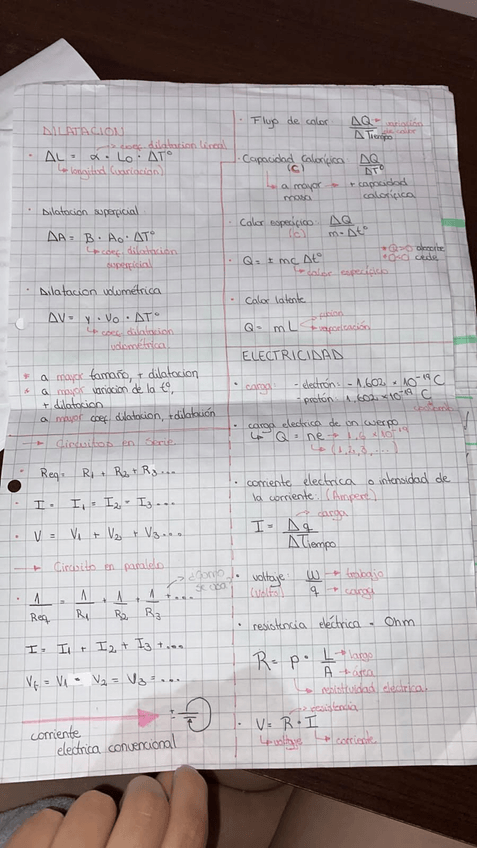 DILATACION
→ coef. dilatacion lineal
· ΔL = α · L₀ · ΔT°
↳ longitud (variación)
· Dilatacion superficial
ΔA = B · A₀ · ΔT°
↳ coef. dilatación
superficial
· Dilatación volumétrica
ΔV = γ · V₀ · ΔT°
↳ coef. dilatación
volumétrica
* a mayor tamaño, + dilatacion
* a mayor variacion de la t°,
+ dilatacion
a mayor coef. dilatación, + dilatación
→ Circuitos en Serie
· Req = R₁ + R₂ + R₃...
· I = I₁ = I₂ = I₃...
· V = V₁ + V₂ + V₃...
→ Circuito en paralelo
· 1/Req = 1/R₁ + 1/R₂ + 1/R₃ + ...
I = I₁ + I₂ + I₃ + ...
Vt = V₁ = V₂ = V₃ = ...
corriente
electrica convencional
· Flujo de calor ΔQ/ΔTiempo → variación de calor
· Capacidad Calorífica (C) ΔQ/ΔT°
↳ a mayor → + capacidad
masa calorífica
· Calor especifico (c) ΔQ/m·Δt°
· Q = ± mc Δt° * Q>0 absorbe
* Q<0 cede
↳ calor especifico
· Calor latente
Q = mL → fusion
→ vaporización
ELECTRICIDAD
· carga - electrón: -1.602 × 10⁻¹⁹ C
- protón: 1.602 × 10⁻¹⁹ C
coulomb
· carga electrica de un cuerpo
↳ Q = ne → 1,6 × 10⁻¹⁹
↳ (1, 2, 3, ...)
· corriente electrica o intensidad de
la corriente. (Ampere)
→ carga
I = Δq/ΔTiempo
· voltaje: (Volto) W/q → trabajo
→ carga
· resistencia eléctrica = Ohm
R = ρ · L/A → largo
→ área
↳ resistividad electrica.
→ resistencia
· V = R · I
↳ voltaje ↳ corriente